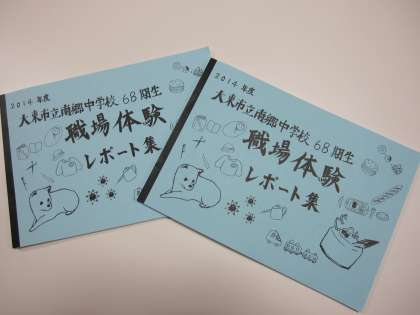 2014年度
大東市立南郷中学校68期生
職場体験
レポート集
2014年度
大東市立南郷中学校68期生
職場体験
レポート集